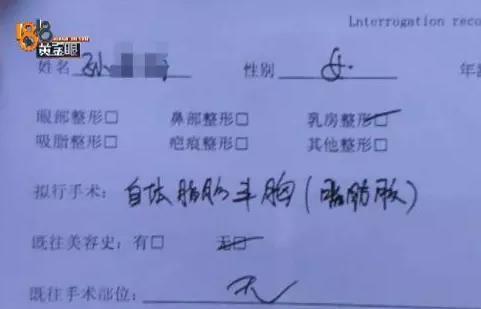 188
黄金眼
Interrogation reco
姓名 孙 性别 女 年
眼部整形□ 鼻部整形□ 乳房整形□
吸脂整形□ 疤痕整形□ 其他整形□
拟行手术: 自体脂肪丰胸(脂肪胶)
既往美容史:有□ 无□
既往手术部位: 无